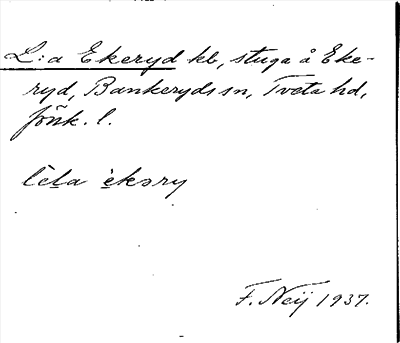 L:a Ekeryd kb, stuga å Eke-
ryd, Bankeryds sn, Tveta hd,
Jönk. l.
lı̀la èkəry
F. Neij 1937.